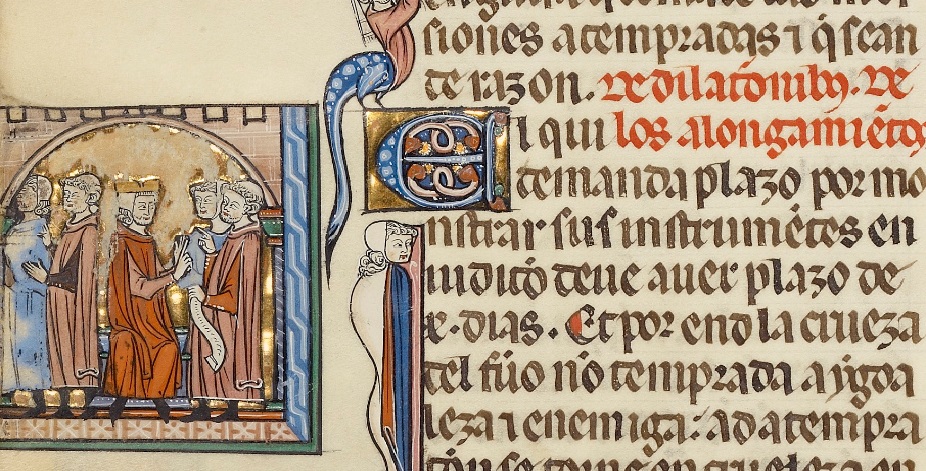 siones atempradas ⁊ q̃ sean
de razon. De dilatõnibȝ. De
El qui los alongamiẽtos
demanda plazo por mo
nstrar sus instrumẽtes en
iudicio deue auer plazo de
x. dias. Et por end la crueza
del fuo nõ temprada a ygoa
leza ⁊ enemiga: ad atempra